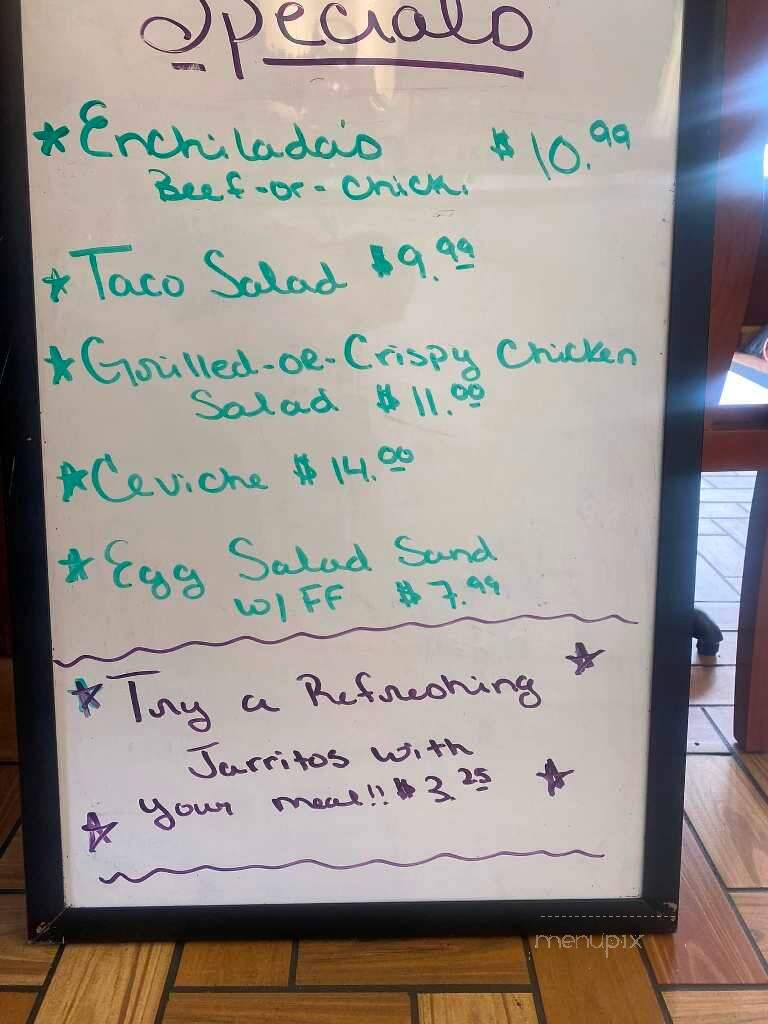 Specials
Enchilada's $10.99
Beef-or-Chick.
Taco Salad $9.99
Grilled-or-Crispy Chicken
Salad $11.00
Ceviche $14.00
Egg Salad Sand
w/FF $7.99
Try a Refreshing
Jarritos with
your meal!! $3.25
menupix